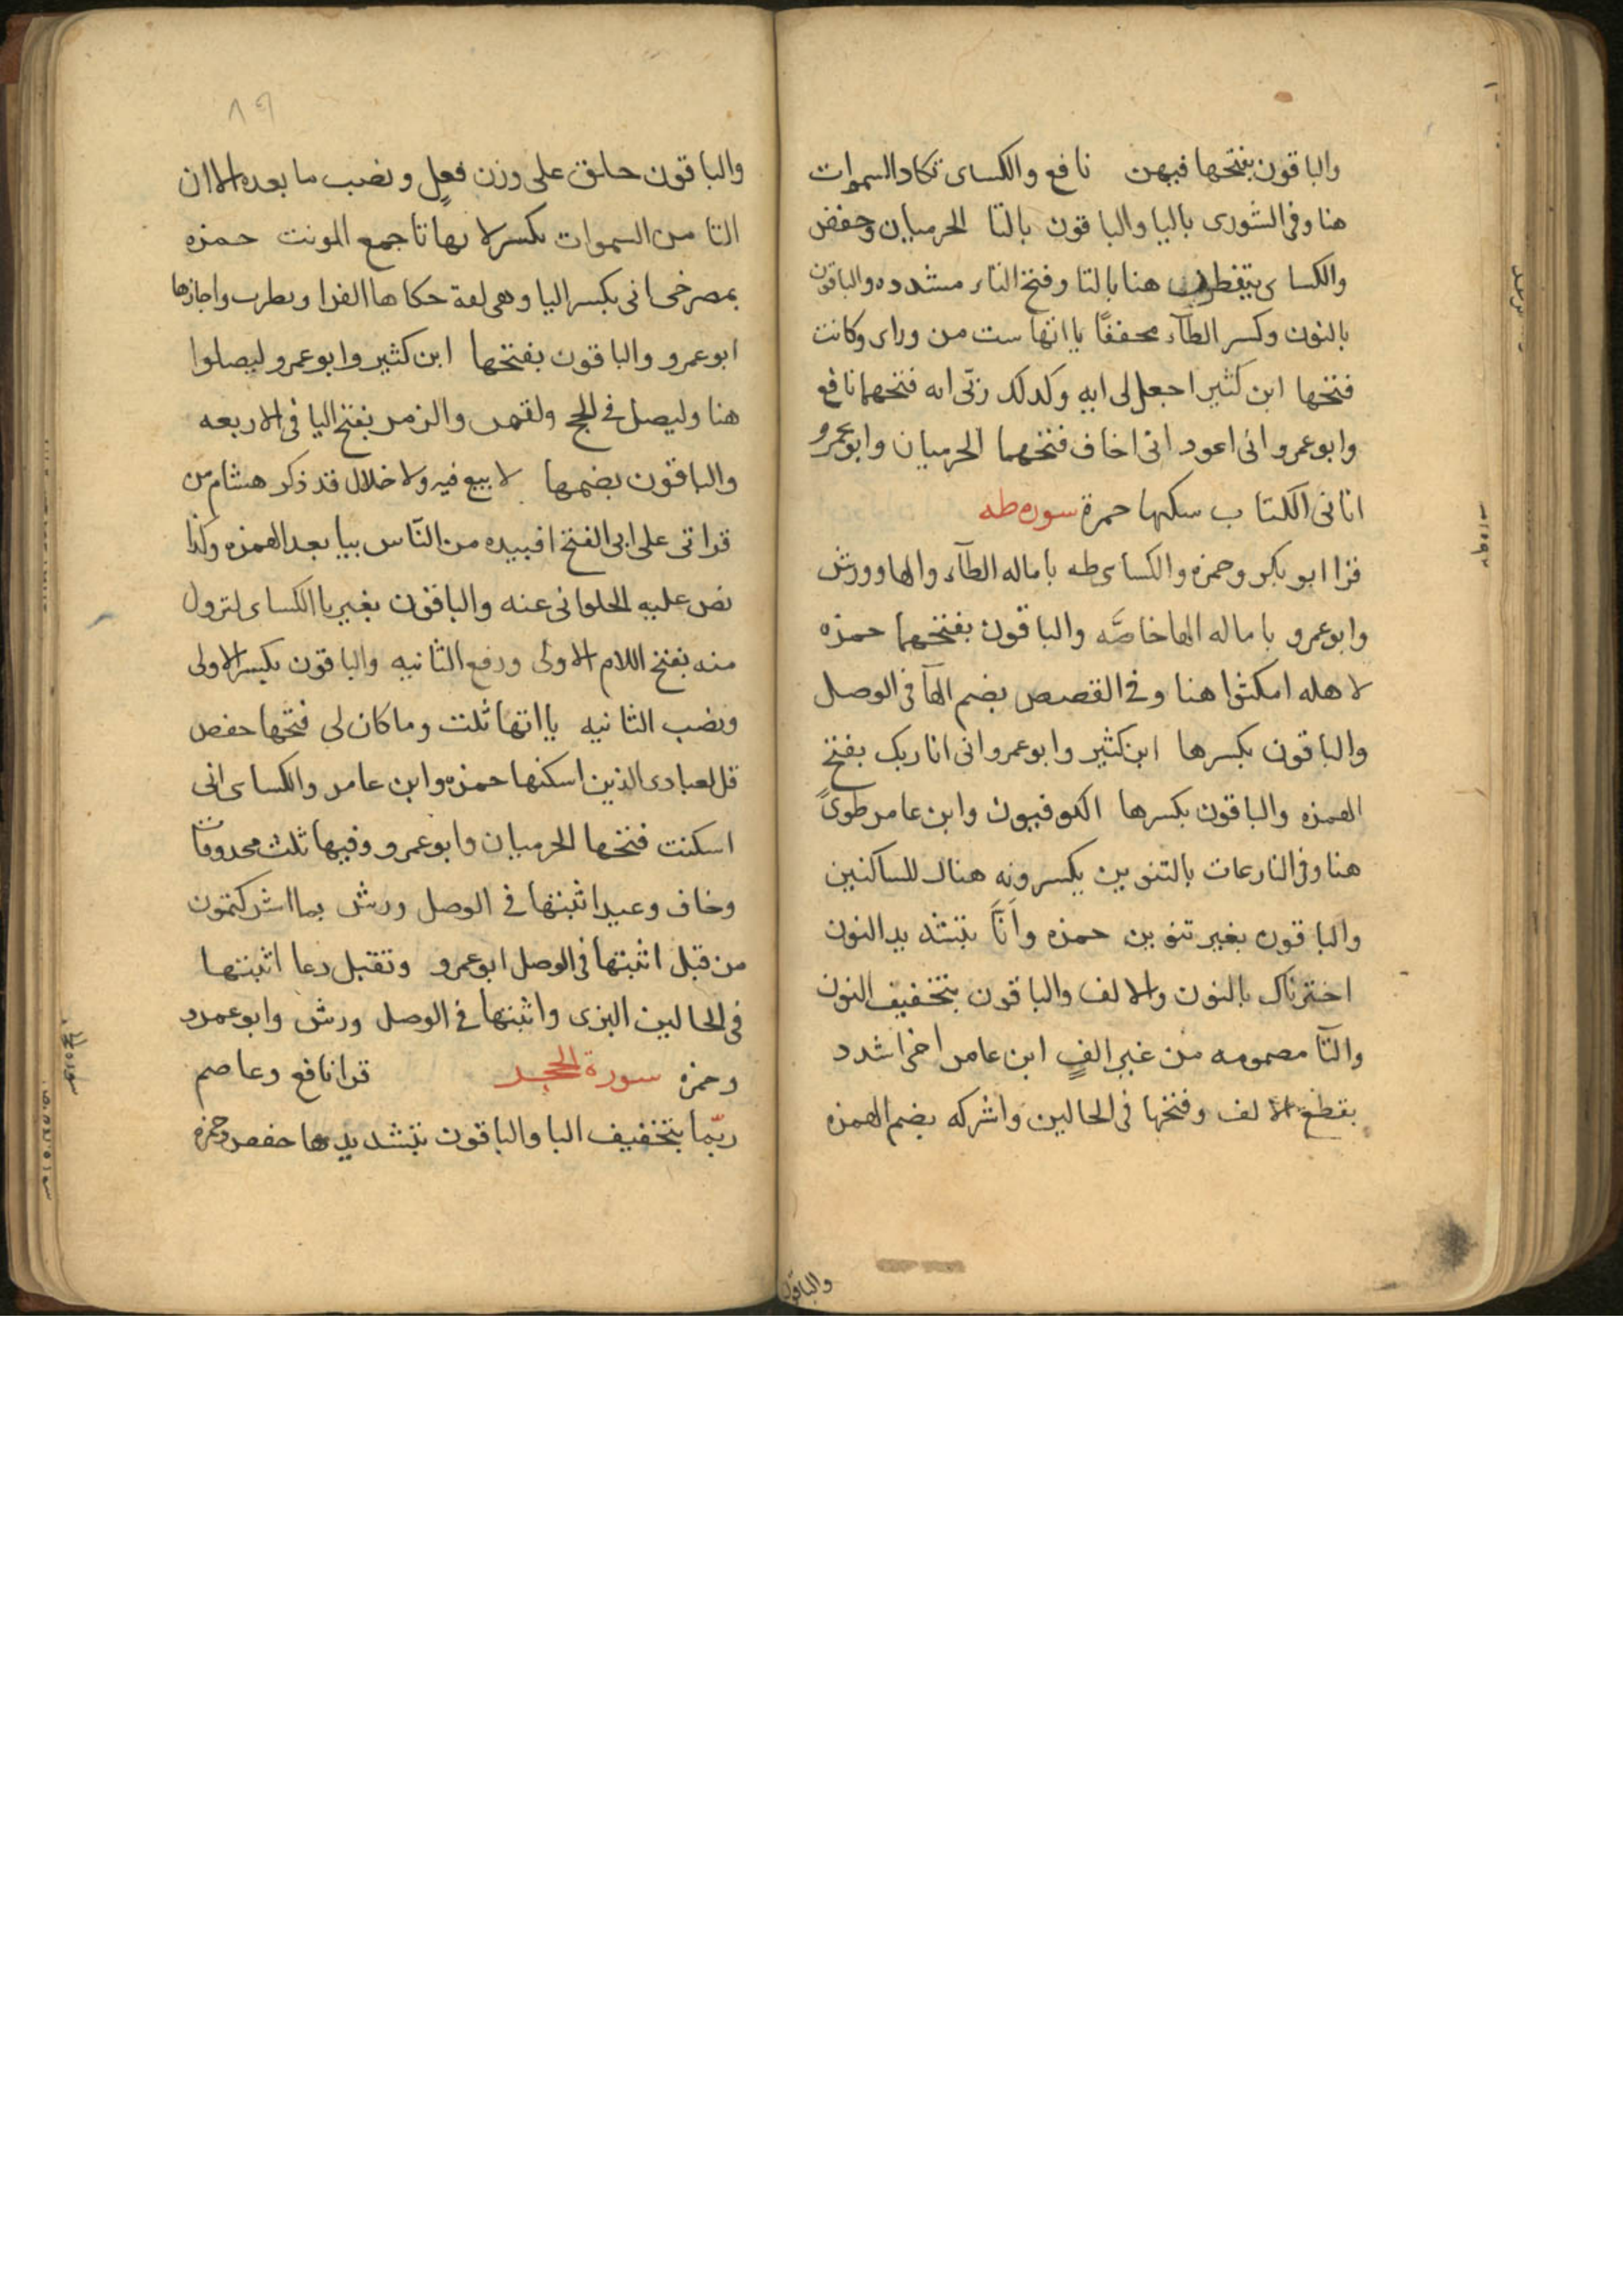 والباقون بفتحها فيهن نافع والكساى تكاد السموات
هنا وفى الشورى باليا والباقون بالتا الحرميان وحفص
والكساى يتفطرن هنا بالتا وفتح الطاء مشدده والباقون
بالنون وكسر الطآء مخففًا يااتها ست من وراى وكانت
فتحها ابن كثير اجعل لى ايه وكدلك ربّى انه فتحهما نافع
وابو عمرو انى اعود انى اخاف فتحهما الحرميان وابو عمرو
اتانى الكتاب سكنها حمزة سوره طه
قرا ابو بكر وحمزه والكساى طه باماله الطآء والها وورش
وابو عمرو باماله الها خاصَّه والباقون بفتحهما حمزه
لاهله امكثوا هنا وفى القصص بضم الهآ فى الوصل
والباقون بكسرها ابن كثير وابو عمرو انى انا ربك بفتح
الهمزه والباقون بكسرها الكوفيون وابن عامر طوىً
هنا وفى النازعات بالتنوين يكسرونه هناك للساكنين
والباقون بغير تنوين حمزه وَاَنَّا بتشديد النون
اخترناك بالنون والالف والباقون بتخفيف النون
والتآ مضمومه من غير الفٍ ابن عامر اخى اشدد
بقطع الالف وفتحها فى الحالين واشركه بضم الهمزه
والباقون
٨٩
والباقون خلق على وزن فعلٍ ونصب ما بعده الا ان
التا من السموات بكسر لانها تا جمع المونث حمزه
بمصرخى انى بكسر اليا وهى لغة حكاها الفرا وقطرب واجازها
ابو عمرو والباقون بفتحها ابن كثير وابو عمرو ليضلوا
هنا وليضل فى الحج ولقمن والزمر بفتح اليا فى الاربعه
والباقون بضمها لا بيع فيه ولا خلال قد ذكر هشام من
قراتى على ابى الفتح افييده من النّاس بيا بعد الهمزه وكذا
نص عليه الحلوانى عنه والباقون بغير يا الكساى لتزول
منه بفتح اللام الاولى ورفع الثانيه والباقون بكسر الاولى
ونصب الثانيه يااتها ثلث وما كان لى فتحها حفص
قل لعبادى الذين اسكنها حمزه وابن عامر والكساى انى
اسكنت فتحها الحرميان وابو عمرو وفيها ثلث محدوفات
وخاف وعيد اثبتها فى الوصل ورش بما اشركتمون
من قبل اثبتها فى الوصل ابو عمرو وتقبل دعا اثبتها
فى الحالين البزى واثبتها فى الوصل ورش وابو عمرو
وحمزه سورة الحجر قرا نافع وعاصم
ربّما بتخفيف البا والباقون بتشديدها حفص وحمزه